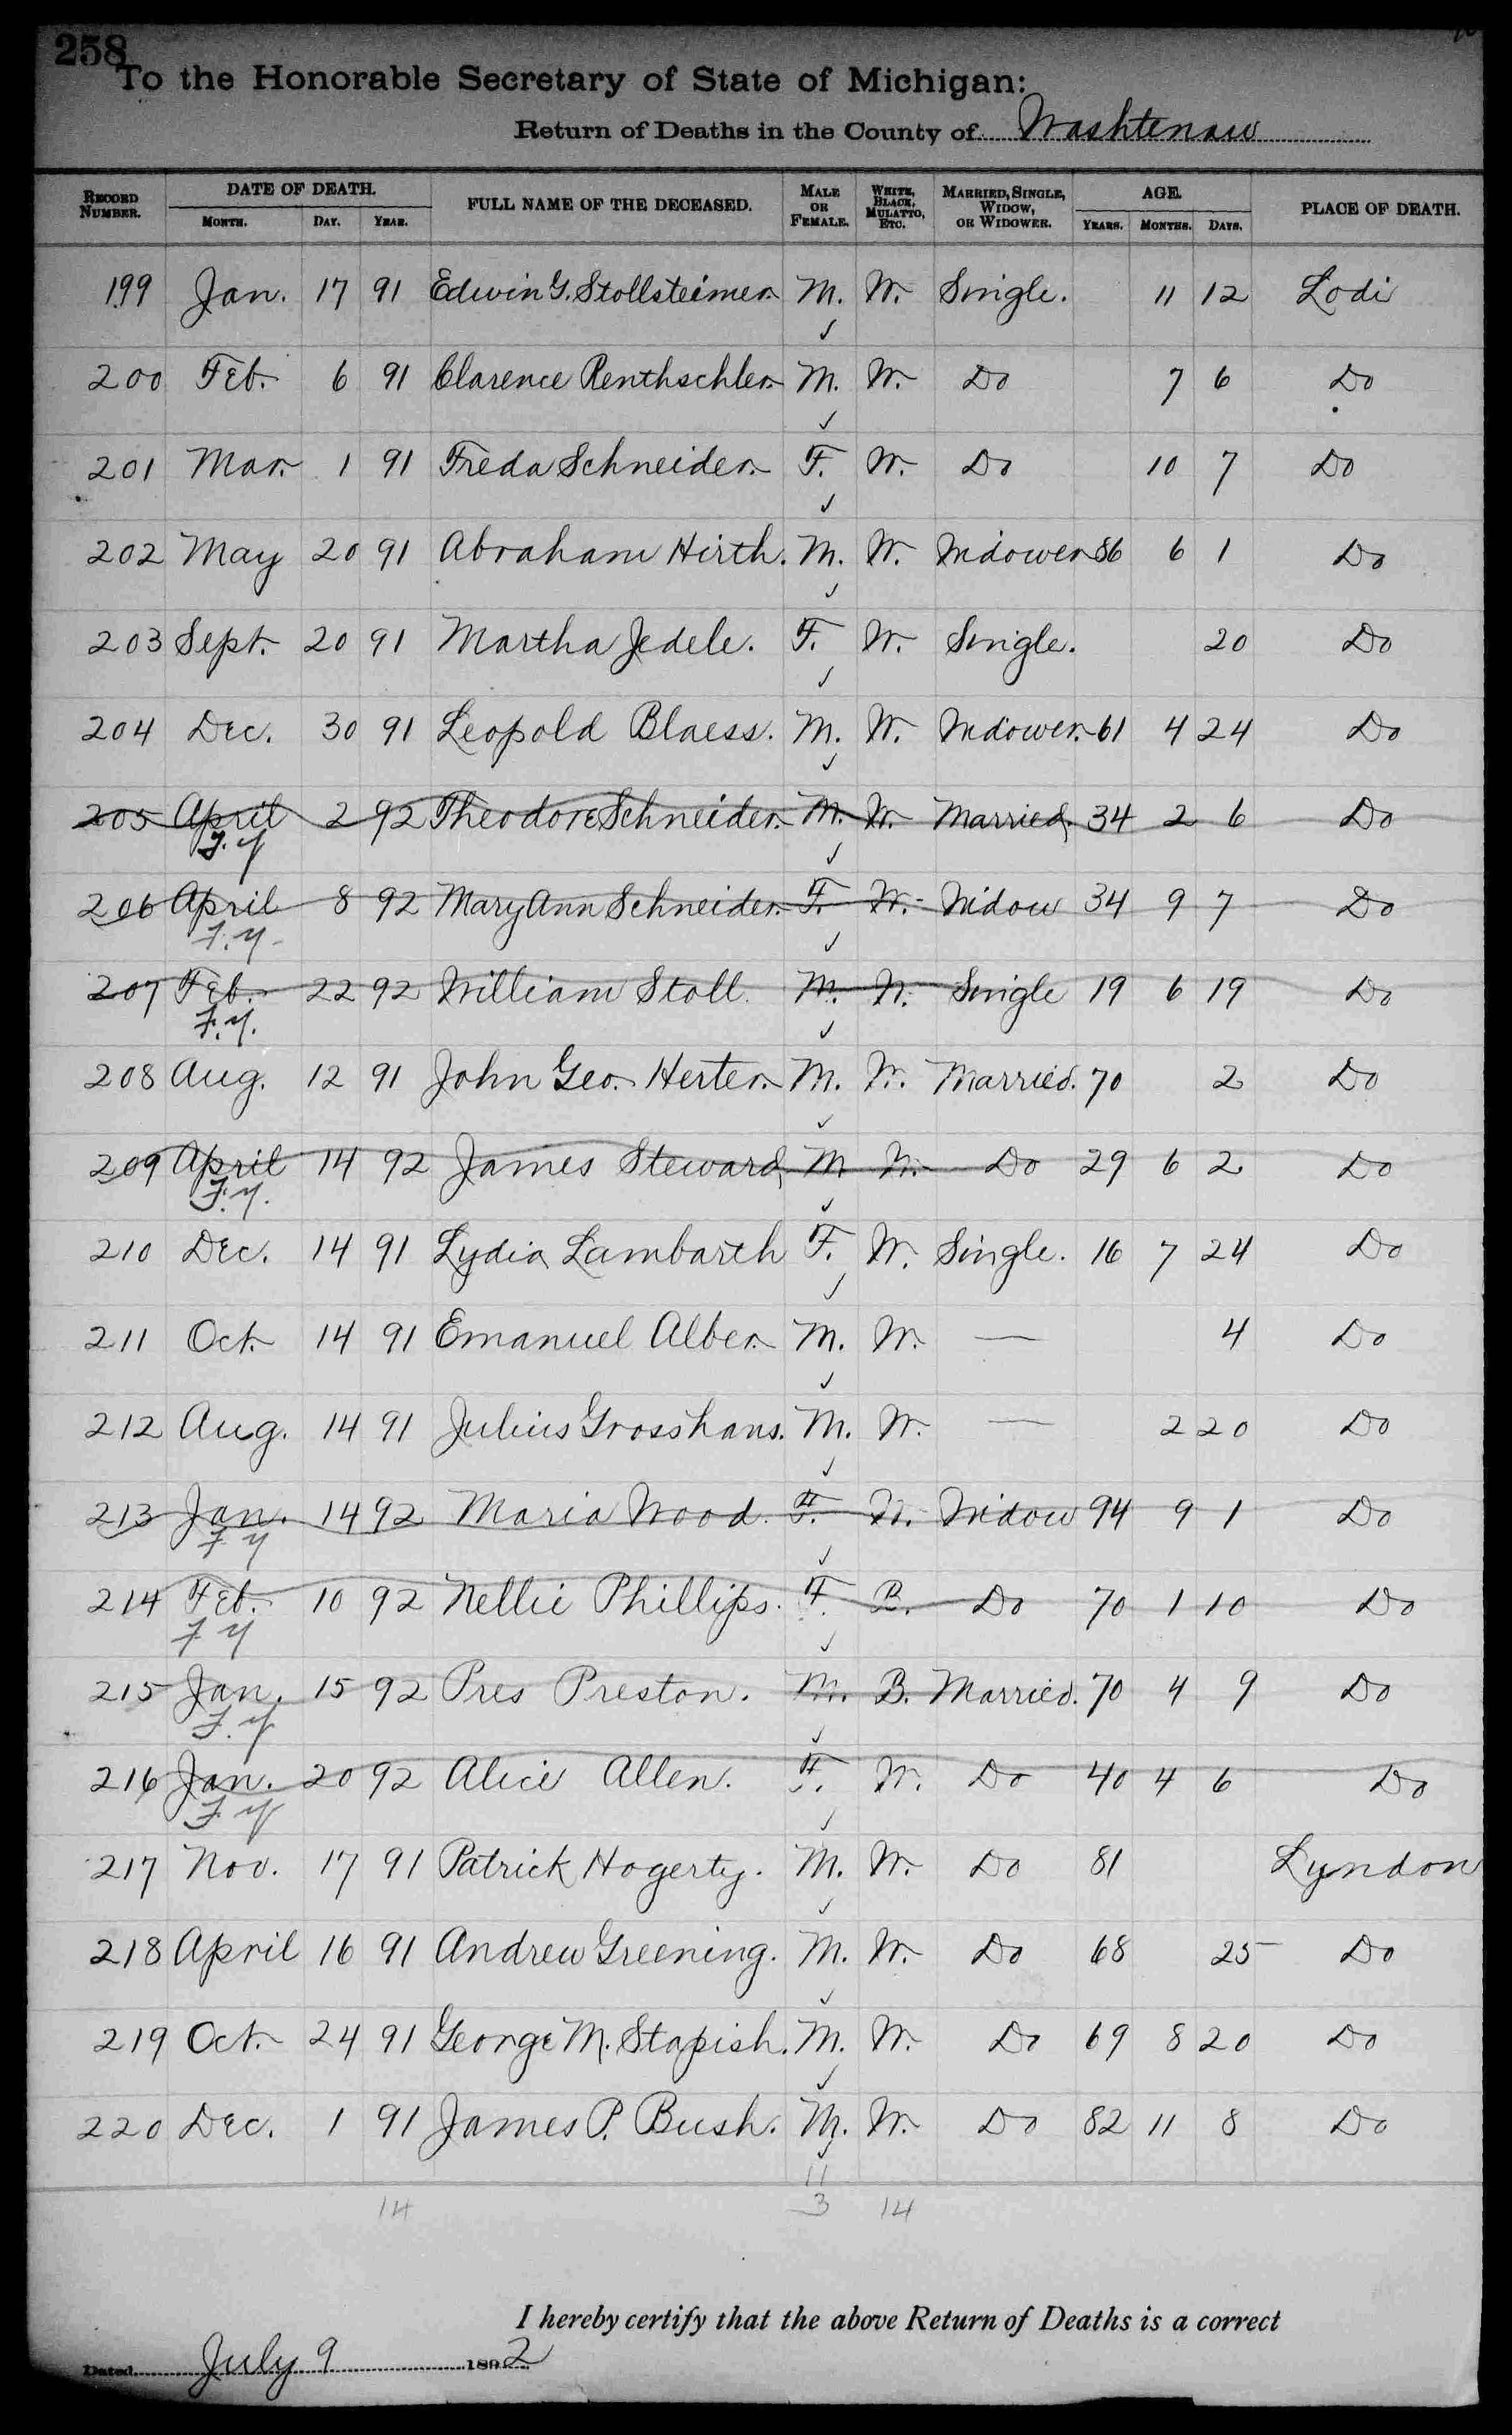 258
To the Honorable Secretary of State of Michigan:
Return of Deaths in the County of Washtenaw
RECORD NUMBER. DATE OF DEATH. MONTH. DAY. YEAR. FULL NAME OF THE DECEASED. MALE OR FEMALE. WHITE, BLACK, MULATTO, ETC. MARRIED, SINGLE, WIDOW, OR WIDOWER. AGE. YEARS. MONTHS. DAYS. PLACE OF DEATH.
199 Jan. 17 91 Edwin G. Stollsteimer. M. W. Single. 11 12 Lodi
200 Feb. 6 91 Clarence Renthschler. M. W. Do 7 6 Do
201 Mar. 1 91 Freda Schneider. F. W. Do 10 7 Do
202 May 20 91 Abraham Hirth. M. W. Widower 86 6 1 Do
203 Sept. 20 91 Martha Jedele. F. W. Single. 20 Do
204 Dec. 30 91 Leopold Blaess. M. W. Widower. 61 4 24 Do
205 April 2 92 Theodore Schneider. M. W. Married. 34 2 6 Do
F.Y.
206 April 8 92 Mary Ann Schneider. F. W. Widow 34 9 7 Do
F.Y.
207 Feb. 22 92 William Stoll. M. W. Single 19 6 19 Do
F.Y.
208 Aug. 12 91 John Geo. Herter. M. W. Married. 70 2 Do
209 April 14 92 James Steward, M W. Do 29 6 2 Do
F.Y.
210 Dec. 14 91 Lydia Lambarth F. W. Single. 16 7 24 Do
211 Oct. 14 91 Emanuel Alber. M. W. — 4 Do
212 Aug. 14 91 Julius Grosshans. M. W. — 2 20 Do
213 Jan. 14 92 Maria Wood. F. W. Widow 94 9 1 Do
F Y
214 Feb. 10 92 Nellie Phillips. F. B. Do 70 1 10 Do
F Y
215 Jan. 15 92 Pres Preston. M. B. Married. 70 4 9 Do
F.Y
216 Jan. 20 92 Alice Allen. F. W. Do 40 4 6 Do
F.Y
217 Nov. 17 91 Patrick Hogerty. M. W. Do 81 Lyndon
218 April 16 91 Andrew Greening. M. W. Do 68 25 Do
219 Oct. 24 91 George M. Stapish. M. W. Do 69 8 20 Do
220 Dec. 1 91 James P. Bush. M. W. Do 82 11 8 Do
11
14 3 14
I hereby certify that the above Return of Deaths is a correct
Dated July 9 1892